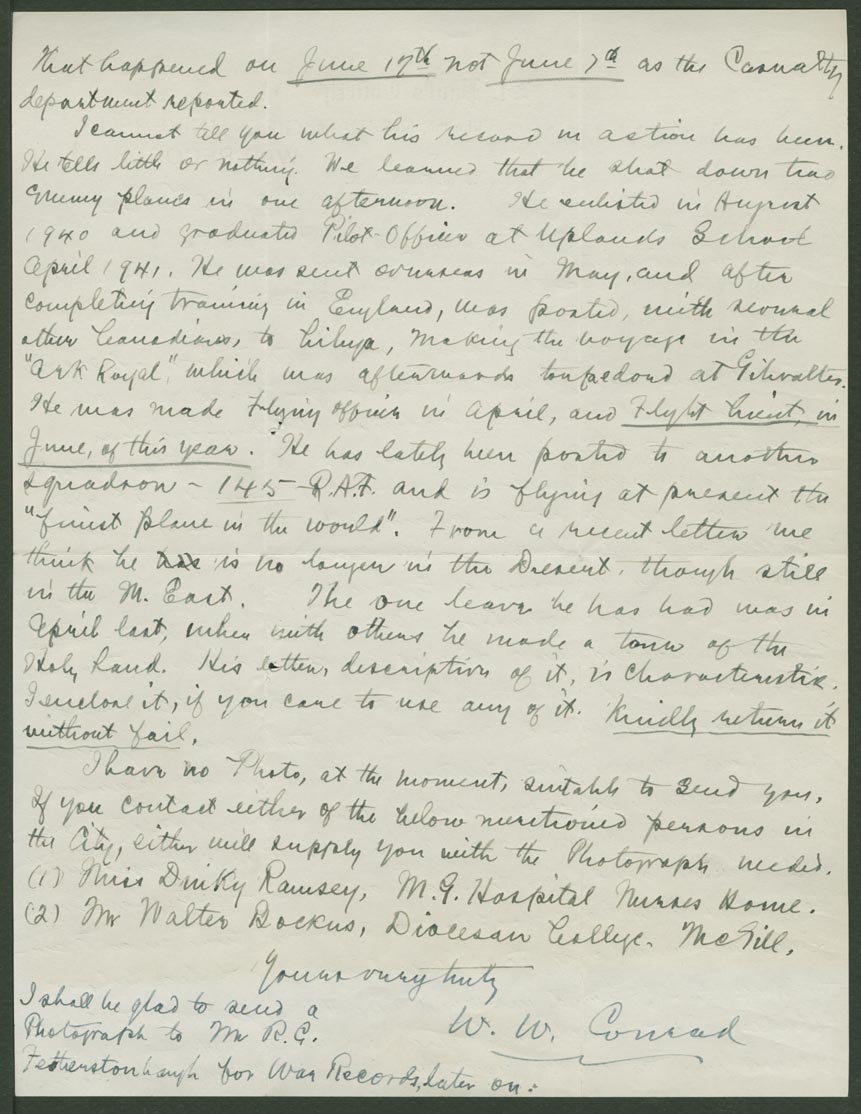 that happened on June 17th not June 7th as the Casualty
department reported.
I cannot tell you what his record in action has been.
He tells little or nothing. We learned that he shot down two
enemy planes in one afternoon. He enlisted in August
1940 and graduated Pilot-Officer at Uplands School
April 1941. He was sent overseas in May, and after
completing training in England, was posted, with several
other Canadians, to Libya, making the voyage in the
"Ark Royal", which was afterwards torpedoed at Gibraltar.
He was made Flying Officer in April, and Flight Lieut, in
June, of this year. He has lately been posted to another
squadron - 145 - R.A.F. and is flying at present the
"finest plane in the world". From a recent letter we
think he is no longer in the Desert, though still
in the M. East. The one leave he has had was in
April last, when with others he made a tour of the
Holy Land. His letter, description of it, is characteristic.
I enclose it, if you care to use any of it. Kindly return it
without fail.
I have no Photo, at the moment, suitable to send you.
If you contact either of the below mentioned persons in
the City, either will supply you with the Photograph needed.
(1) Miss Dinky Ramsey, M.G. Hospital Nurses Home.
(2) Mr Walter Bockus, Diocesan College. McGill.
Yours very truly
W. W. Conrad
I shall be glad to send a
Photograph to Mr R.C.
Fetherstonhaugh for War Records, later on: